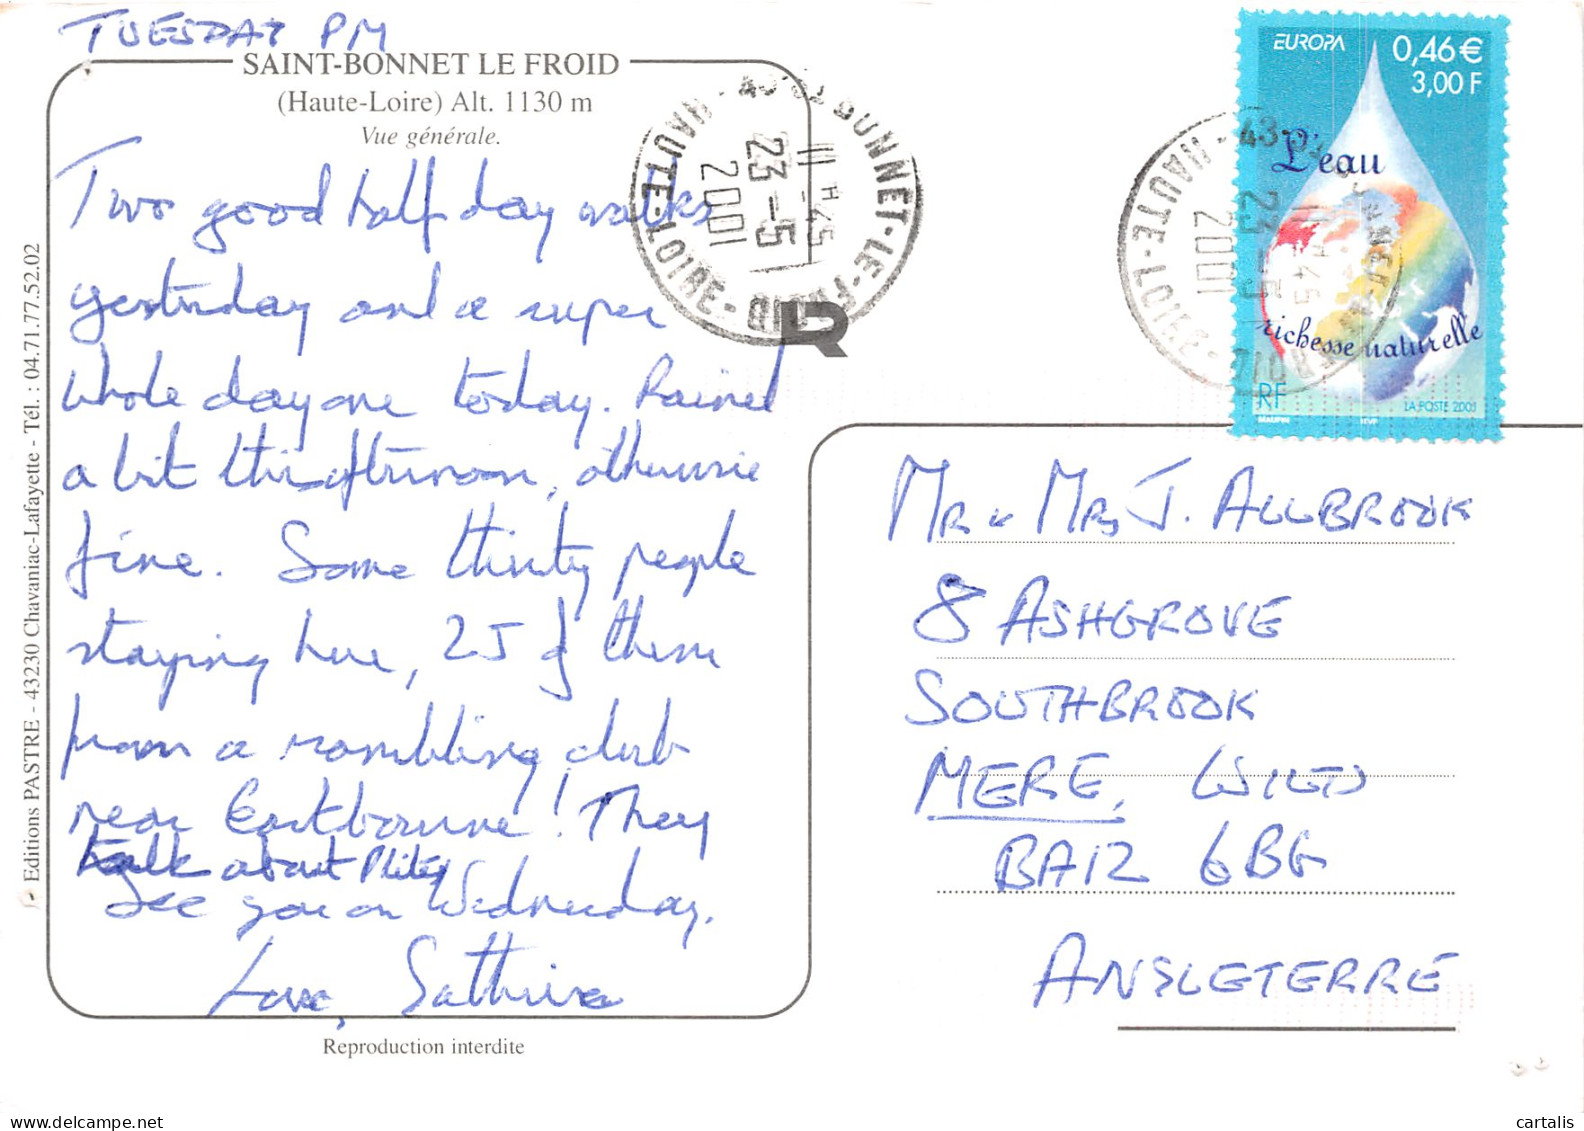 TUESDAY PM
SAINT-BONNET LE FROID
(Haute-Loire) Alt. 1130 m
Vue générale.
Two good half day walks
yesterday and a super
whole day one today. Rained
a bit this afternoon, otherwise
fine. Some thirty people
staying here, 25 of them
from a rambling club
near Eastbourne! They
talk about
See you on Wednesday.
Love,
Editions PASTRE - 43230 Chavaniac-Lafayette - Tél. : 04.71.77.52.02
Reproduction interdite
43 St BONNET-LE-FROID
HAUTE-LOIRE
11 H 45
23 -5
2001
LR
EUROPA 0,46 €
3,00 F
L'eau
richesse naturelle
RF
LA POSTE 2001
43 St BONNET
HAUTE-LOIRE
11 H 45
23 -5
2001
MR & MRS J. ALLBROOK
8 ASHGROVE
SOUTHBROOK
MERE, WILTS
BA12 6BG
ANGLETERRE
cartalis